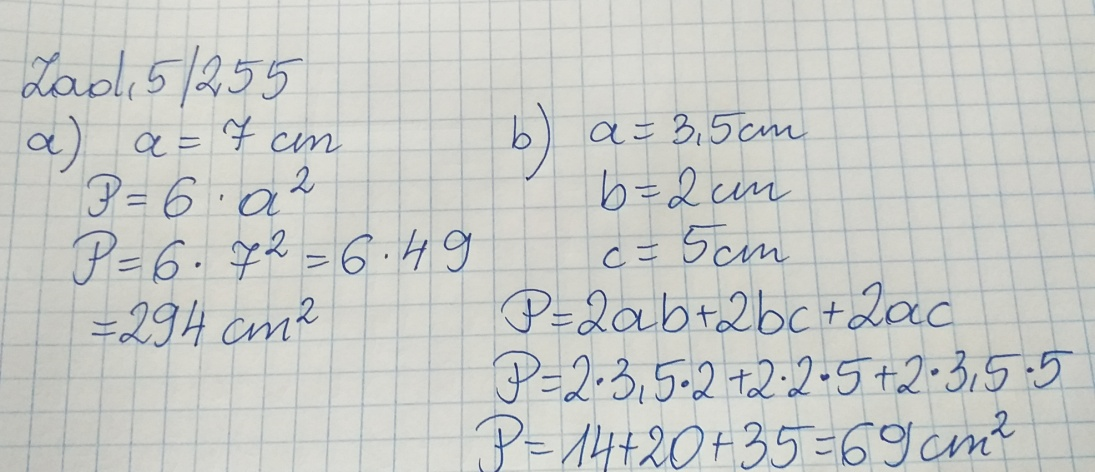 Zad. 5/255
a) a = 7 cm
P = 6 · a²
P = 6 · 7² = 6 · 49
= 294 cm²
b) a = 3,5 cm
b = 2 cm
c = 5 cm
P = 2ab + 2bc + 2ac
P = 2·3,5·2 + 2·2·5 + 2·3,5·5
P = 14 + 20 + 35 = 69 cm²